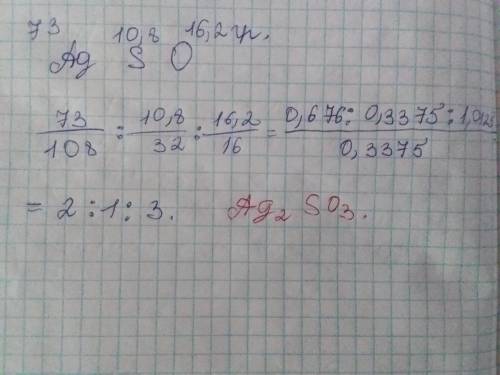 73 10,8 16,2 гр.
Ag S O
73/108 : 10,8/32 : 16,2/16 = 0,676 : 0,3375 : 1,0125/0,3375
= 2 : 1 : 3. Ag₂ SO₃.